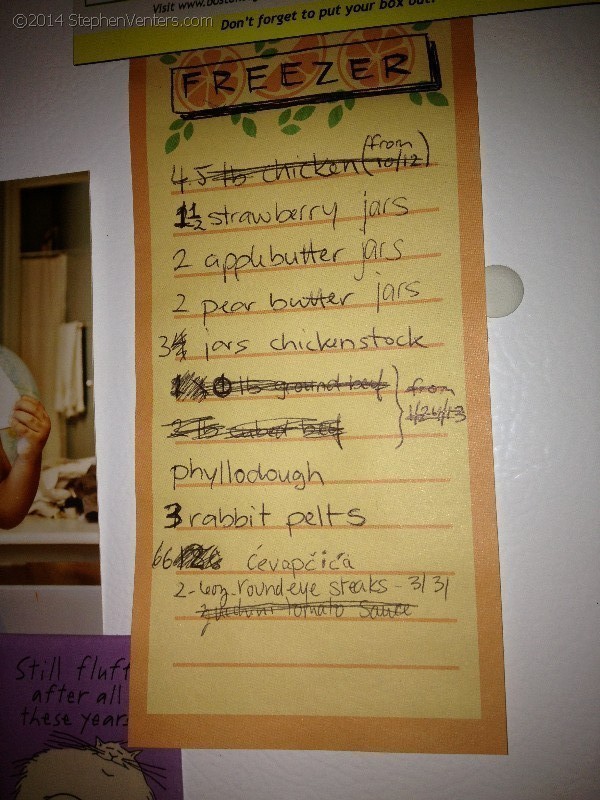 ©2014 StephenVenters.com
Visit www.bostonorg
Don't forget to put your box out!
FREEZER
4.5 lb chicken (from 10/12)
1 1/2 strawberry jars
2 applebutter jars
2 pear butter jars
3 jars chickenstock
1 lb ground beef } from 1/26/13
2 lb cubed beef
phyllodough
3 rabbit pelts
66 ćevapčića
2-6oz. roundeye steaks - 3/31
zucchini tomato sauce
Still fluff
after all
these years